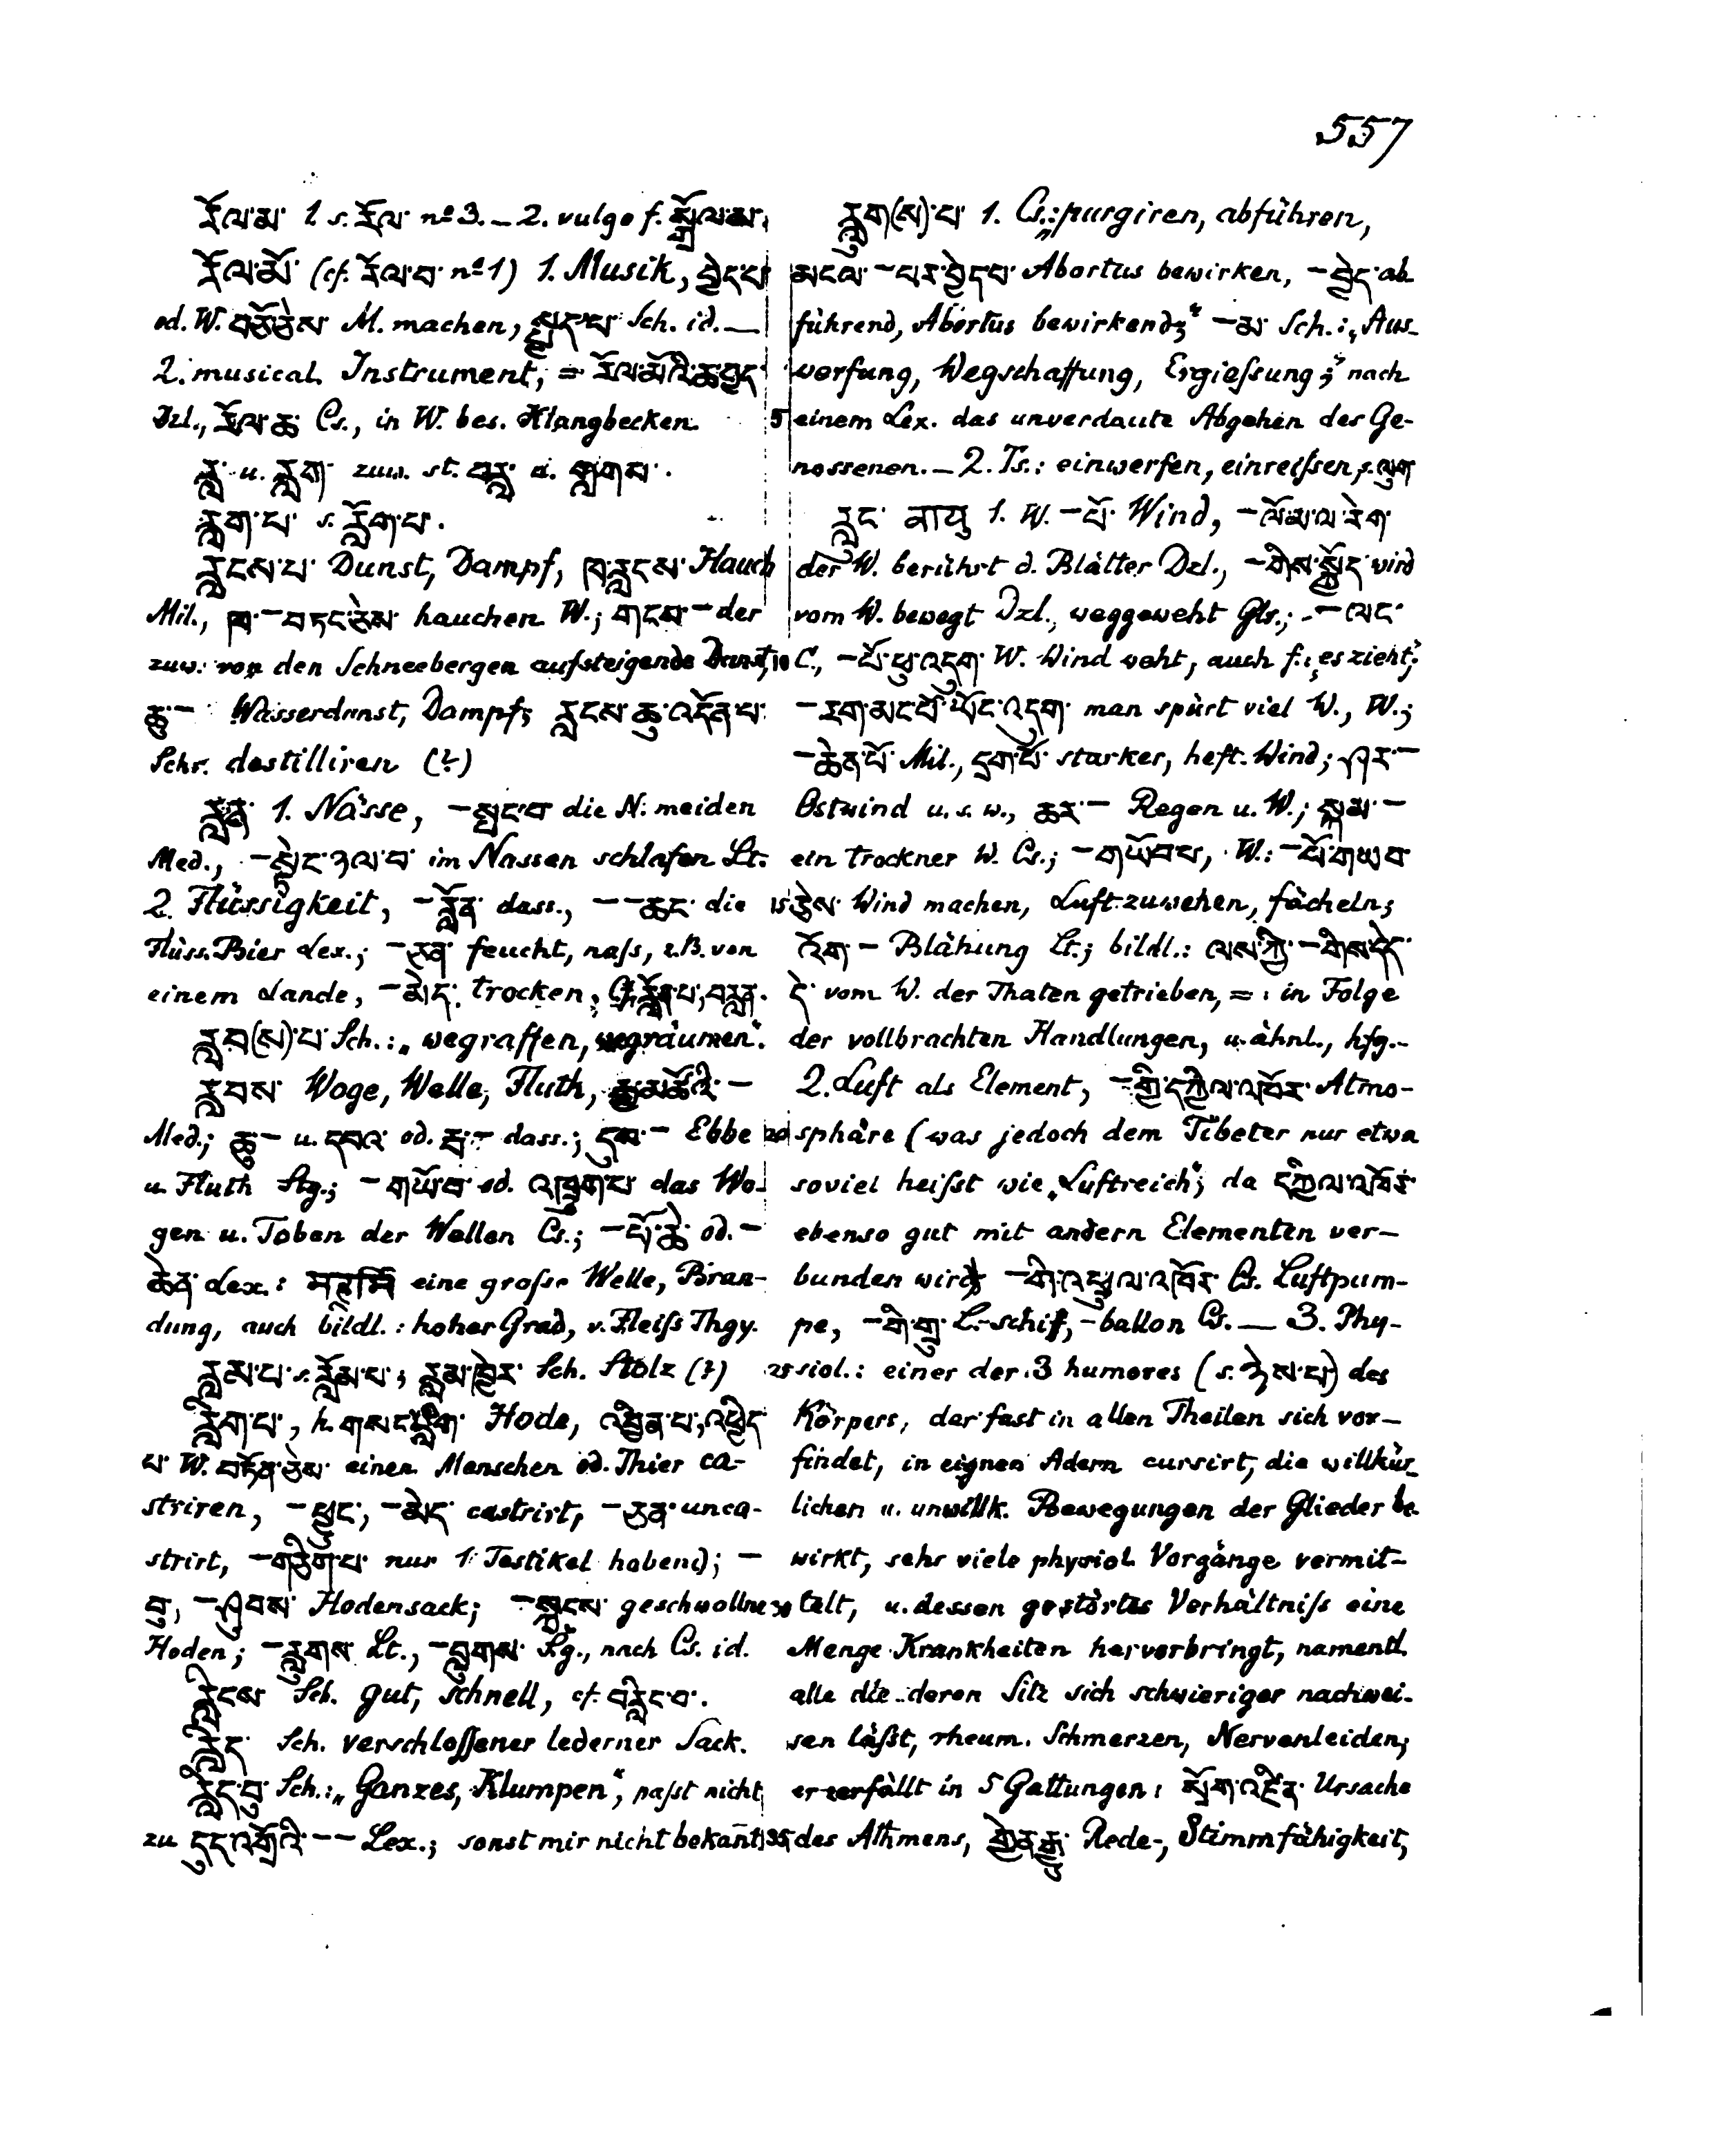 557
རོལ་མ་ 1 s. རོལ་ nº 3. – 2. vulgo f. སྒྲོལ་མ་
རོལ་མོ་ (cf. རོལ་བ་ nº 1) 1. Musik, བྱེད་པ་
od. W. བཅོ་ཅེས་ M. machen, Sch. id. —
2. musical. Instrument, = རོལ་མོའི་ཆ་བྱད་
Dzl., རོལ་ཆ་ Cs., in W. bes. Klangbecken.
རླ་ u. རླག་ zuw. st. བརླ་ u. གླགས་.
རླག་པ་ s. རློག་པ་.
རླངས་པ་ Dunst, Dampf, ཁ་རླངས་ Hauch
Mil., ཁ་ – བཏང་ཅེས་ hauchen W.; གངས་ – der
zuw. von den Schneebergen aufsteigende Dunst,
ཆུ་ – Wasserdunst, Dampf; རླངས་ཆུ་འདོན་པ་
Schr. destilliren (?)
རླན་ 1. Nässe, – སྤང་བ་ die N. meiden
Med., – སྟེང་ཉལ་བ་ im Nassen schlafen Lt.
2. Flüssigkeit, – རློན་ dass., – – ཆང་ die
Flüss. Bier Lex.; – ཅན་ feucht, naſs, z.B. von
einem Lande, – མེད་ trocken, Cf. རློན་པ་, བརླན་.
རླབ(ས)་པ་ Sch.: „wegraffen, wegräumen“.
རླབས་ Woge, Welle, Fluth, རྒྱ་མཚོའི་ –
Med.; ཆུ་ – u. དབའ་ od. རྦ་ – dass.; དུས་ – Ebbe
u. Fluth Stg.; – གཡོ་བ་ od. འཁྲུག་པ་ das Wo-
gen u. Toben der Wellen Cs.; – པོ་ཆེ་ od. –
ཆེན་ Lex.: eine groſse Welle, Bran-
dung, auch bildl.: hoher Grad, v. Fleiſs Thgy.
རླམ་པ་ s. རློམ་པ་; རླམ་ཁྱེར་ Sch. Stolz (?)
རླིག་པ་, h. གསང་རླིག་ Hode, འབྱིན་པ་, འཕྱིད་
པ་ W. བཏོན་ཅེས་ einen Menschen od. Thier ca-
striren, – ཕྱུང་, – མེད་ castrirt, – ཅན་ unca-
strirt, – གཅིག་པ་ nur 1 Testikel habend; –
བུ་, – ཤུབས་ Hodensack; – སྐྲངས་ geschwollne
Hoden; – རླུགས་ Lt., – བླུགས་ Lg., nach Cs. id.
རླིངས་ Sch. gut, schnell, cf. བརླིང་བ་.
རླིད་ Sch. verschloſſener lederner Sack.
རླིང་བུ་ Sch.: „Ganzes, Klumpen“, paſst nicht
zu དུད་འགྲོའི་ – – Lex.; sonst mir nicht bekañt
རླུག(ས)་པ་ 1. Cs.: „purgiren, abführen,
མངལ་ – པར་བྱེད་པ་ Abortus bewirken, – བྱེད་ ab
führend, Abortus bewirkend;“ – མ་ Sch.: „Aus-
werfung, Wegschaffung, Ergieſsung;“ nach
5 einem Lex. das unverdaute Abgehen des Ge-
nossenen. – 2. Ts.: einwerfen, einreiſsen, s. ལུག
རླུང་ वायु 1. W. – པོ་ Wind, – ལོ་མ་ལ་རེག་
der W. berührt d. Blätter Dzl., – གིས་སྐྱོད་ wird
vom W. bewegt Dzl., weggeweht Glr.; – ལང་
10 C., – པོ་ཕུ་འདུག་ W. Wind weht, auch f. „es zieht“;
– རག་མང་པོ་ཡོང་འདུག་ man spürt viel W., W.;
– ཆེན་པོ་ Mil., དྲག་པོ་ starker, heft. Wind; ཤར་ –
Ostwind u. s. w., ཆར་ – Regen u. W.; སྐམ་ –
ein trockner W. Cs.; – གཡོབ་པ་, W.: – པོ་གཡབ་
15 ཅེས་ Wind machen, Luft zuwehen, fächeln;
འོག་ – Blähung Lt.; bildl.: ལས་ཀྱི་ – གིས་དེད་
དེ་ vom W. der Thaten getrieben, =: in Folge
der vollbrachten Handlungen, u. ähnl., hfg. –
2. Luft als Element, – གི་དཀྱིལ་འཁོར་ Atmo-
20 sphäre (was jedoch dem Tibeter nur etwa
soviel heiſst wie „Luftreich“, da དཀྱིལ་འཁོར་
ebenso gut mit andern Elementen ver-
bunden wird) – གི་འཕྲུལ་འཁོར་ Cs. Luftpum-
pe, – གི་གྲུ་ L.-schiff, – ballon Cs. — 3. Phy-
25 siol.: einer der 3 humores (s. ཉེས་པ་) des
Körpers, der fast in allen Theilen sich vor-
findet, in eignen Adern cursirt, die willkür-
lichen u. unwillk. Bewegungen der Glieder be-
wirkt, sehr viele physiol. Vorgänge vermit-
30 telt, u. dessen gestörtes Verhältniſs eine
Menge Krankheiten hervorbringt, namentl.
alle die deren Sitz sich schwieriger nachwei-
sen läßt, rheum. Schmerzen, Nervenleiden;
er zerfällt in 5 Gattungen: སྲོག་འཛིན་ Ursache
35 des Athmens, གྱེན་རྒྱུ་ Rede-, Stimmfähigkeit,